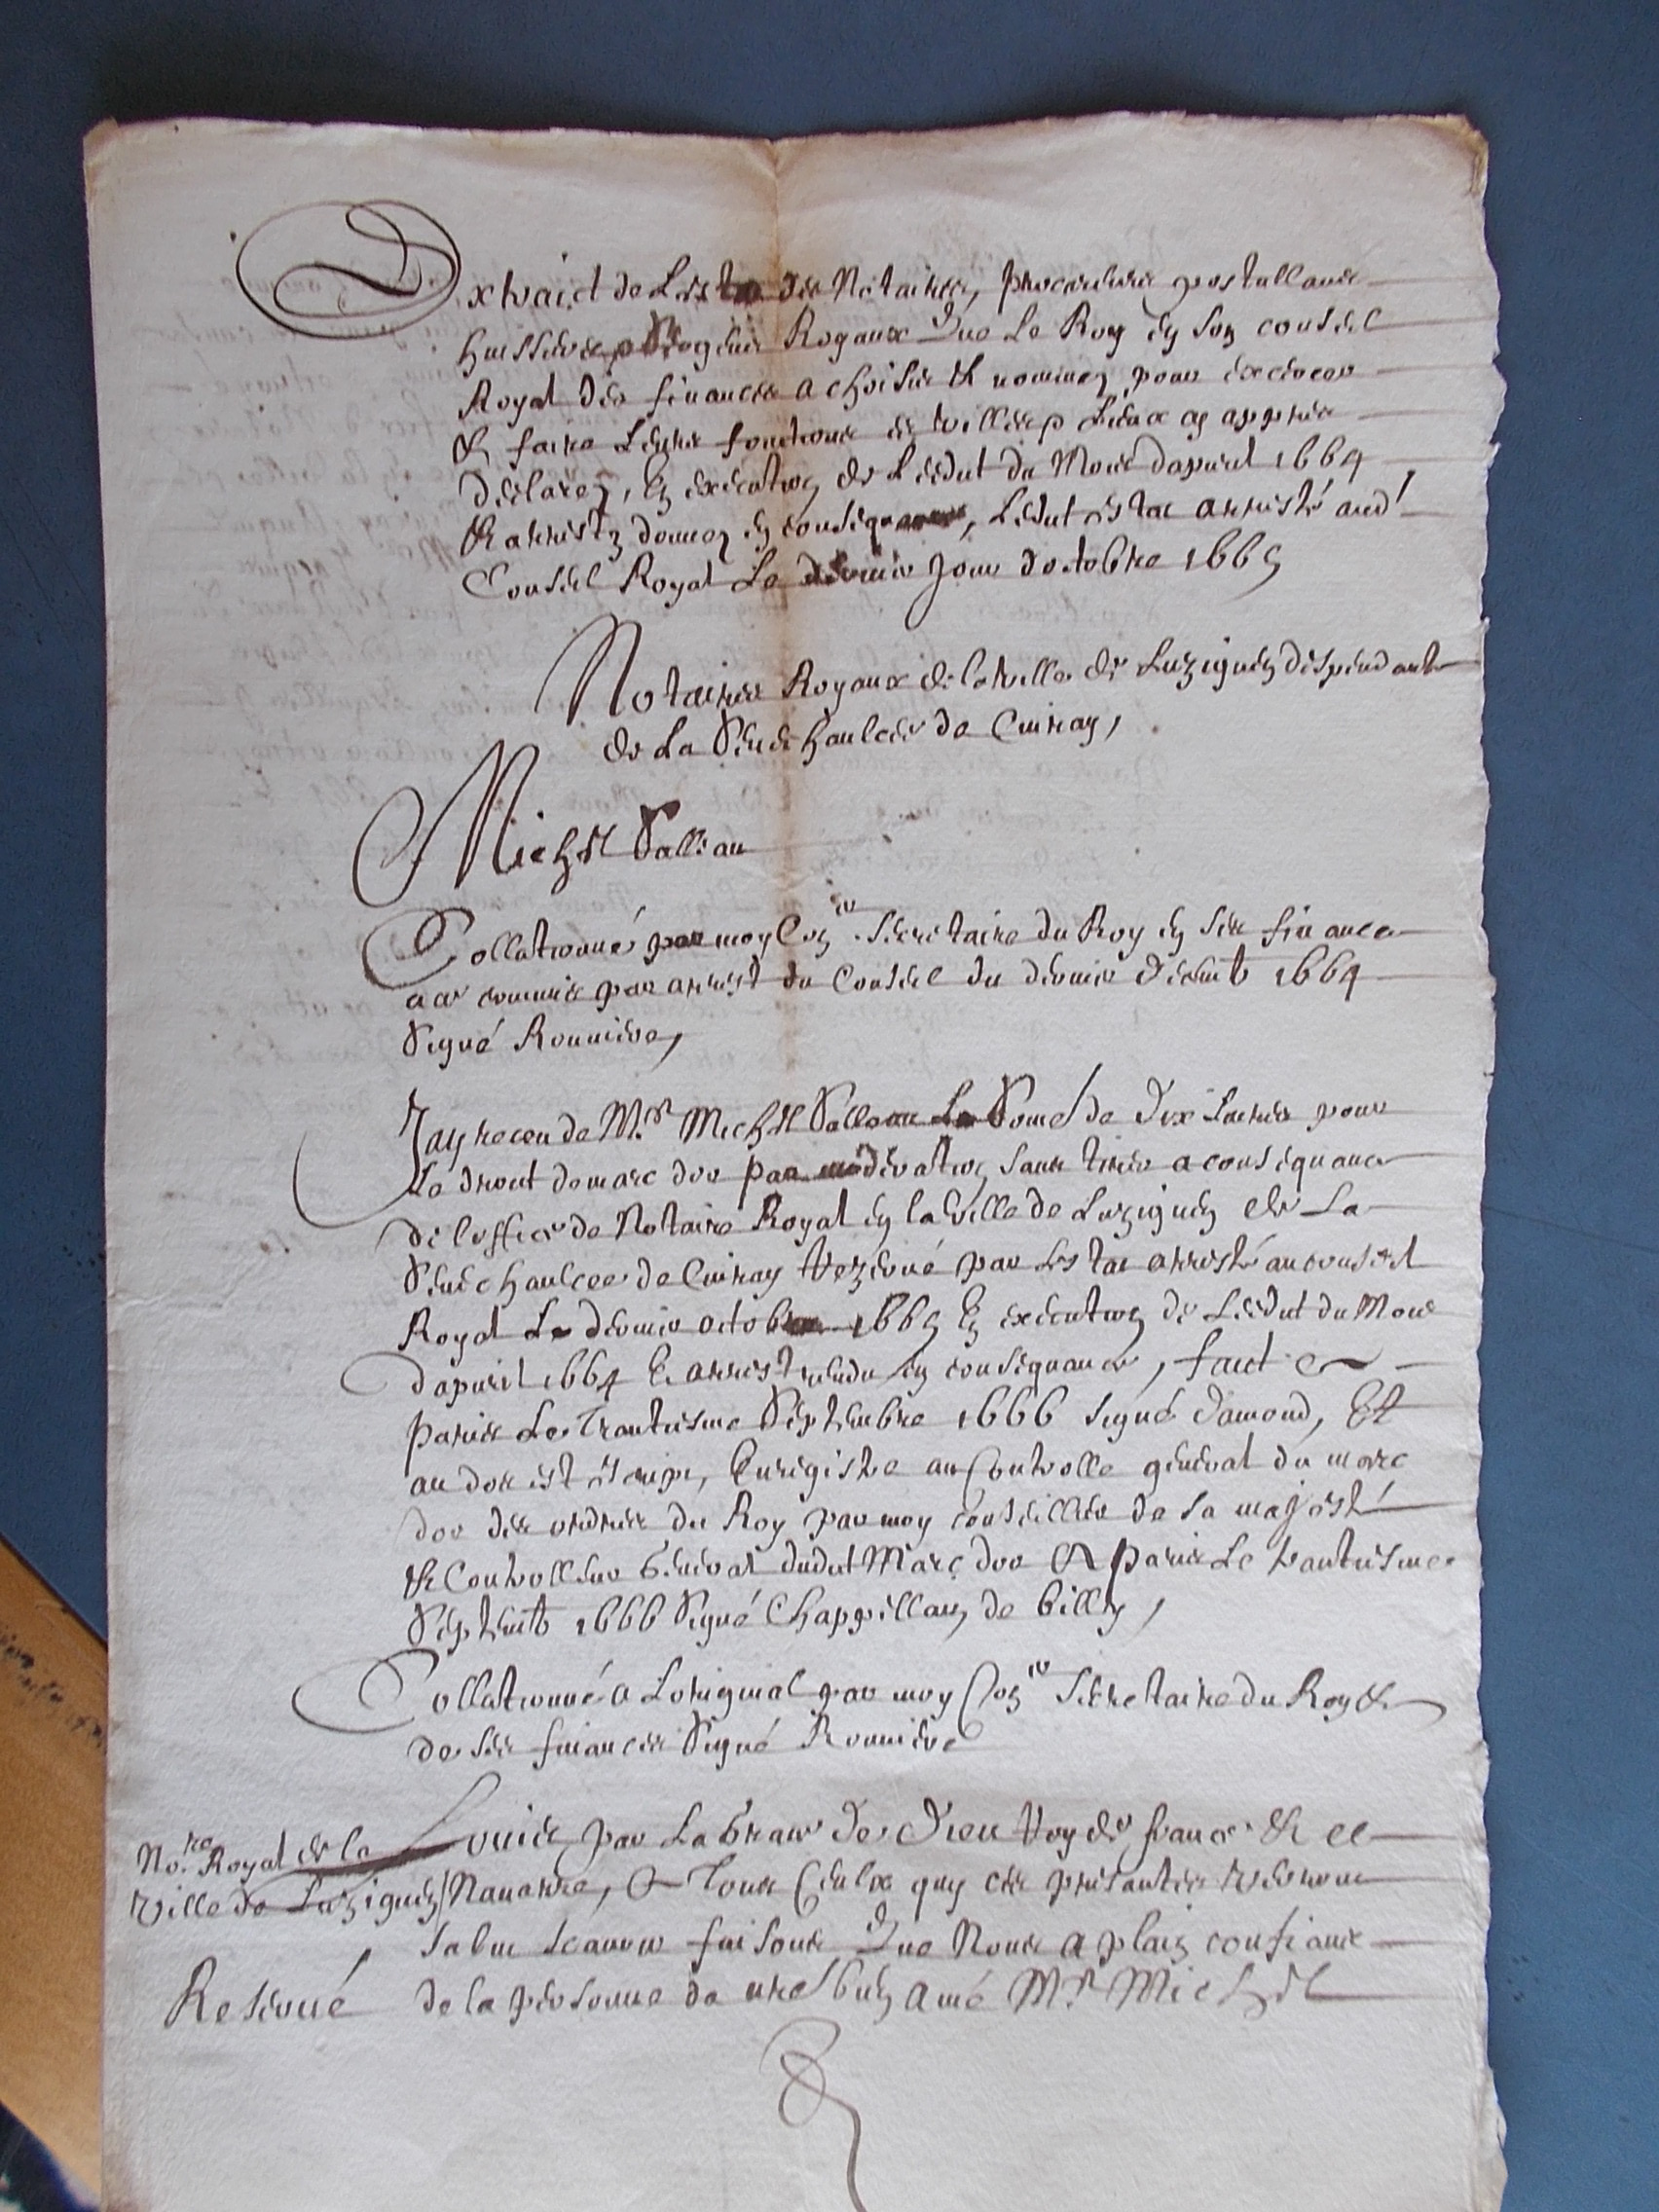 Extraict de Lestat des Notaires, procureurs postullans
huissiers & sergens Royaux Que Le Roy en son conseil
Royal des finances a choisis & nommez pour exercer
& faire Leurs fonctions es villes & Lieux cy appres
declarez, En execution de L'edict du Mois dapvril 1664
& arrestz donnez en consequance, Ledict estat arresté aud.
Conseil Royal Le dernier Jour doctobre 1665
Notaires Royaux de la ville de Luzignen despendant
de La Seneschaulcée de Civray,
Michel Salleau
Collationné par moy Con.er Secretaire du Roy en ses finances
a ce commis par arrest du Conseil du dernier Decemb. 1664
Signé Roumiere,
Jay receu de M.e Michel Salleau La Some de Dix Livres pour
Le droict de marc dor par moderation, sans tirer a consequance
de loffice de Notaire Royal en la ville de Luzignen de La
Seneschaulcee de Civray reservé par Lestat arresté au conseil
Royal Le dernier octobre 1665 En execution de Ledict du Mois
dapvril 1664 Et arrest rendu en consequance, faict a
Paris Le Trantiesme Septembre 1666 Signé Damond, Et
au dos est escript, Enregistre au Controlle general du marc
dor des ordres du Roy par moy conseiller de Sa majesté
& Controlleur General dudict Marc dor A Paris Le trantiesme
Septemb. 1666 Signé Chappellain de billy,
Collationné a Loriginal par moy Con.er Secretaire du Roy &
de ses finances Signé Roumiere
No.re Royal de la
ville de Luzignen
Reservé
Louis par La Grace de Dieu Roy de france & de
Navarre, A Tous Ceulx quy ces presantes verront
Salut scavoir faisons Que Nous a plain confians
de la personne de nre bien amé M.e Michel